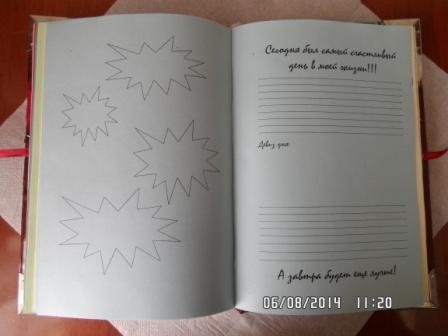 Сегодня был самый счастливый
день в моей жизни!!!
Девиз дня:
А завтра будет еще лучше!
06/08/2014 11:20